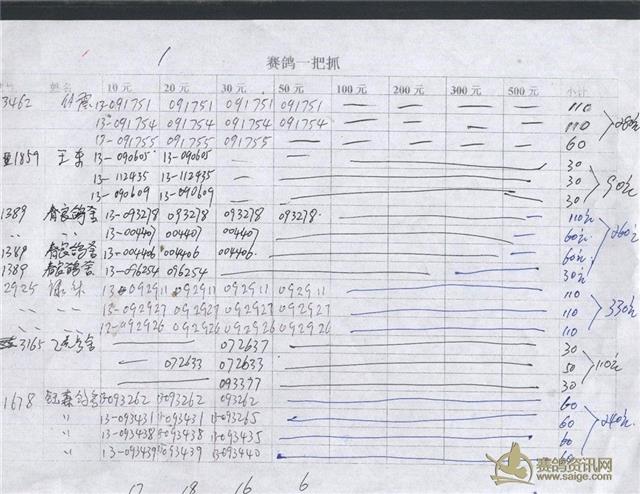 赛鸽一把抓
姓名 10 元 20 元 30 元 50 元 100 元 200 元 300 元 500 元 小计
3462 13-091751 091751 091751 091751 — — — — 110
13-091754 091754 091754 091754 — — — — 110 280元
13-091755 091755 091755 — — — — — 60
1859 王 13-090605 13-090605 — 30
13-112435 13-112435 — 30 90元
13-090609 13-090609 — 30
1389 鸽舍 13-093278 093278 093278 093278. — 110元
〃 〃 13-004407 004407 004407 — 60元 260元
1389 鸽舍 13-004406 004406 004406. — 60元
1389 鸽舍 13-096254 096254 — 30元
2925 13-092911 092911 092911 092911 110
〃 〃 13-092927 092927 092927 092927 110 330元
〃 〃 092926 092926 092926 092926 110
3165 飞 072637 30
— 072633 072633 50 110元
093377 30
1678 13-093262 093262 093262 60
〃 13-093431 093431 093265 60 240元
〃 13-093438 093438 093435 60
〃 13-093439 093439 093440 60
17 18 16 6
赛鸽资讯网
www.saige.com